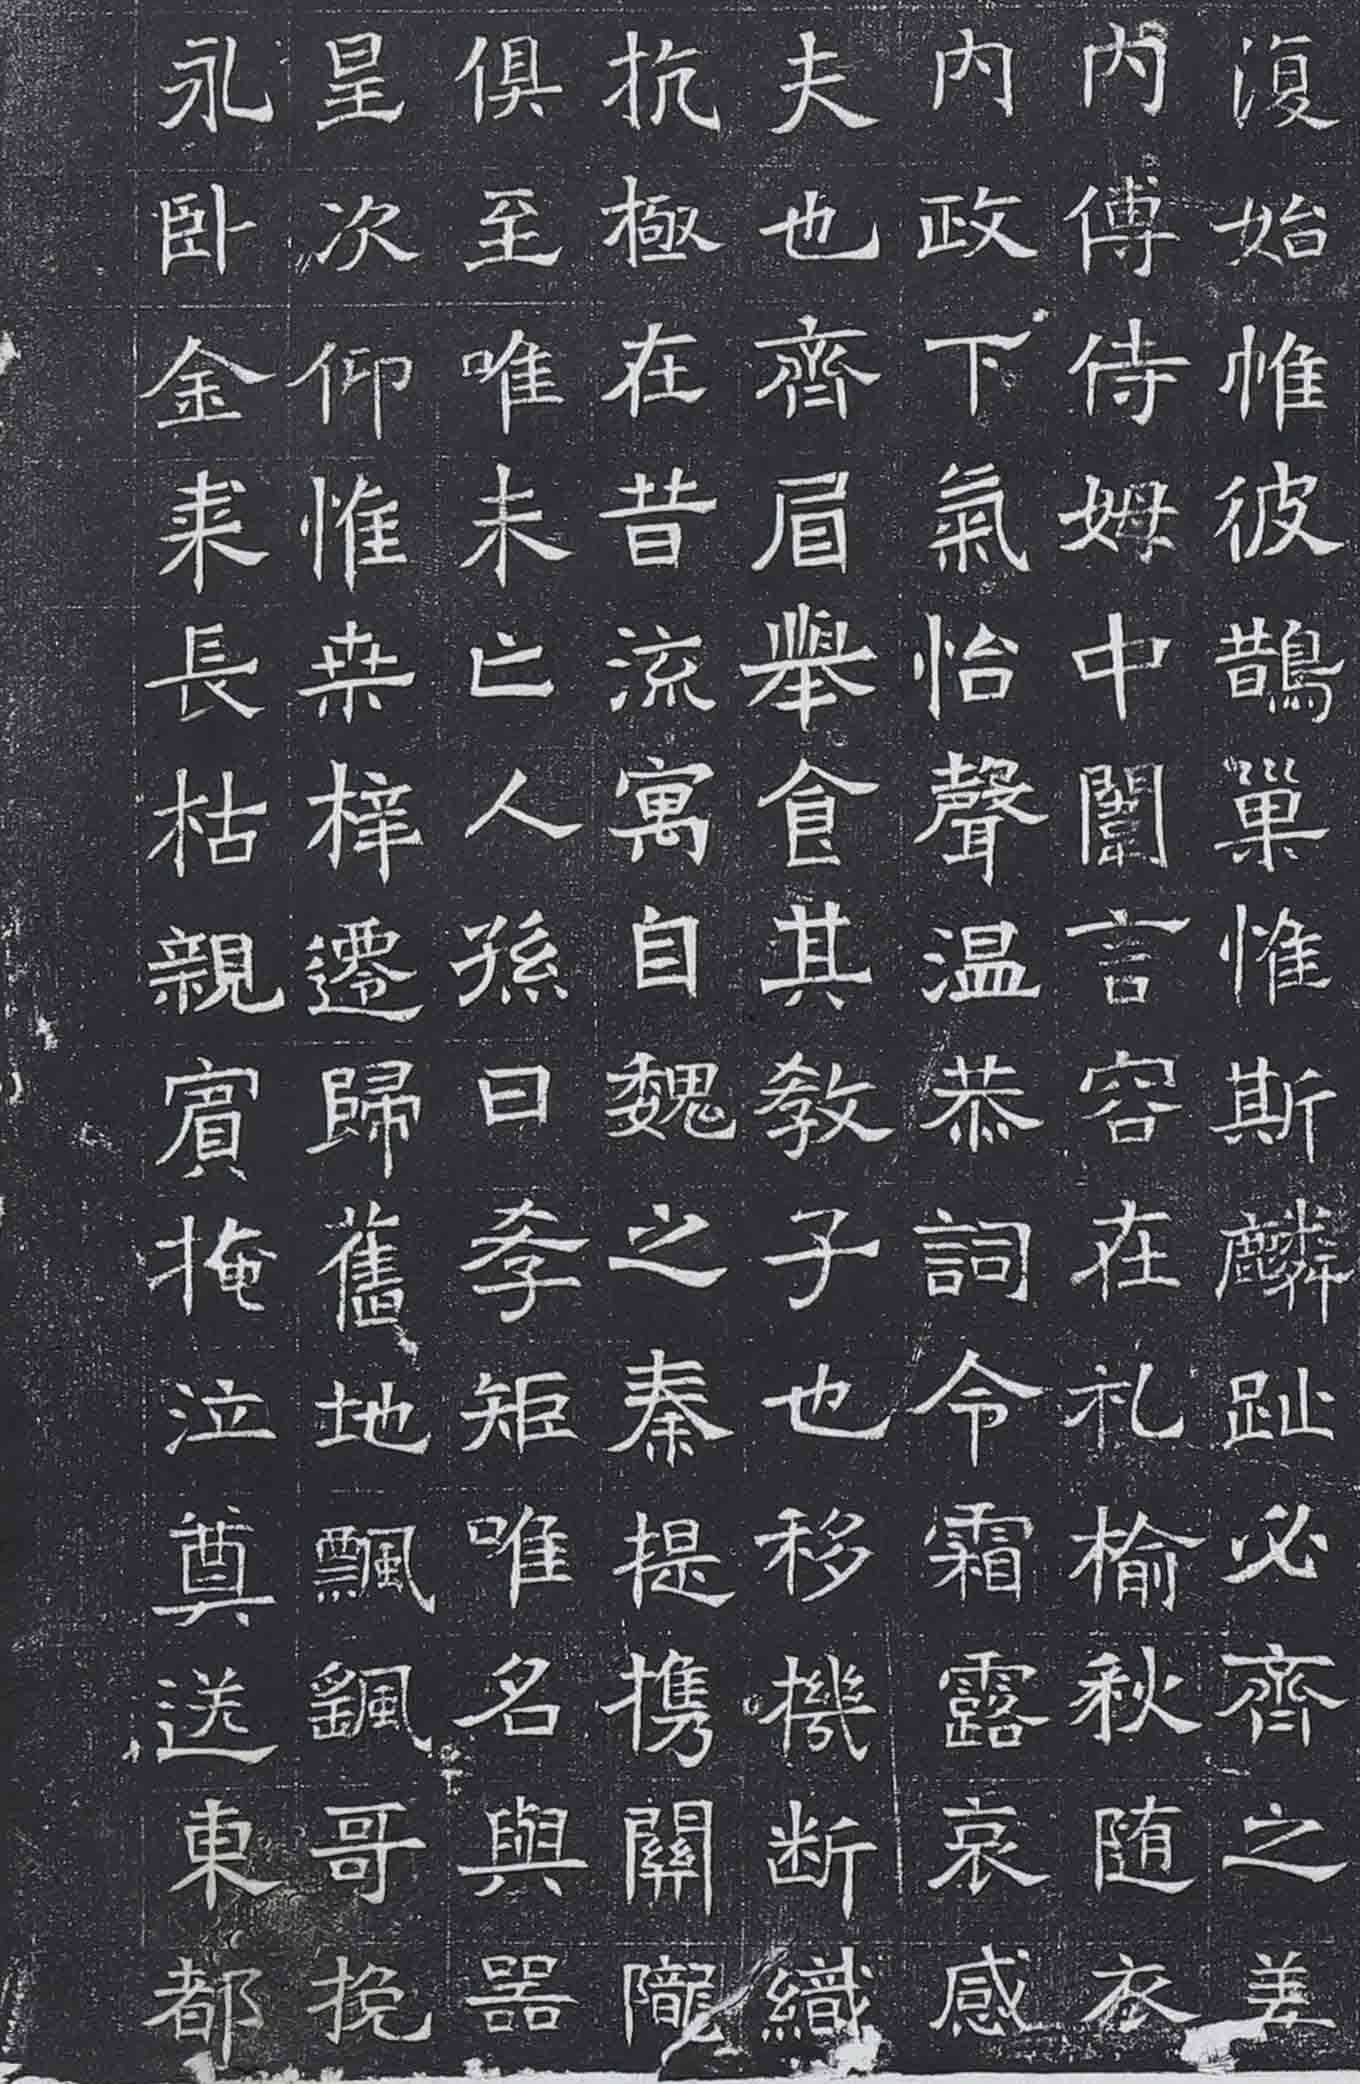 復始惟彼鵲巢惟斯麟趾必齊之姜
内傅侍姆中闈言容在礼榆秋随衣
内政下氣怡聲温恭詞令霜露哀感
夫也齊眉舉食其教子也移機断織
抗極在昔流寓自魏之秦提携關隴
俱至唯未亡人孫曰孝矩唯名與器
呈次仰惟桒梓遷歸舊地飄飖哥挽
永卧金夫長枯親賓掩泣奠送東都